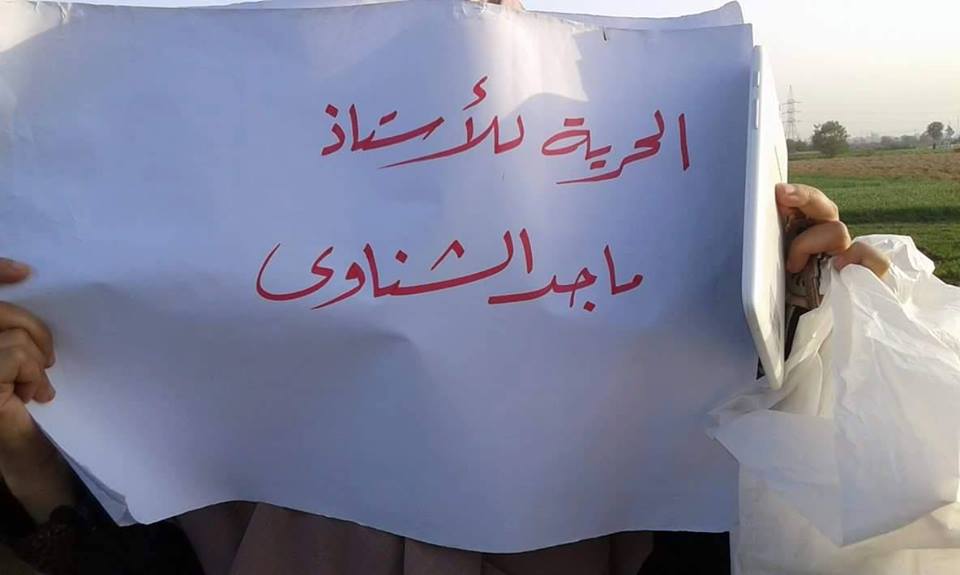 الحرية للأستاذ
ماجد الشناوى